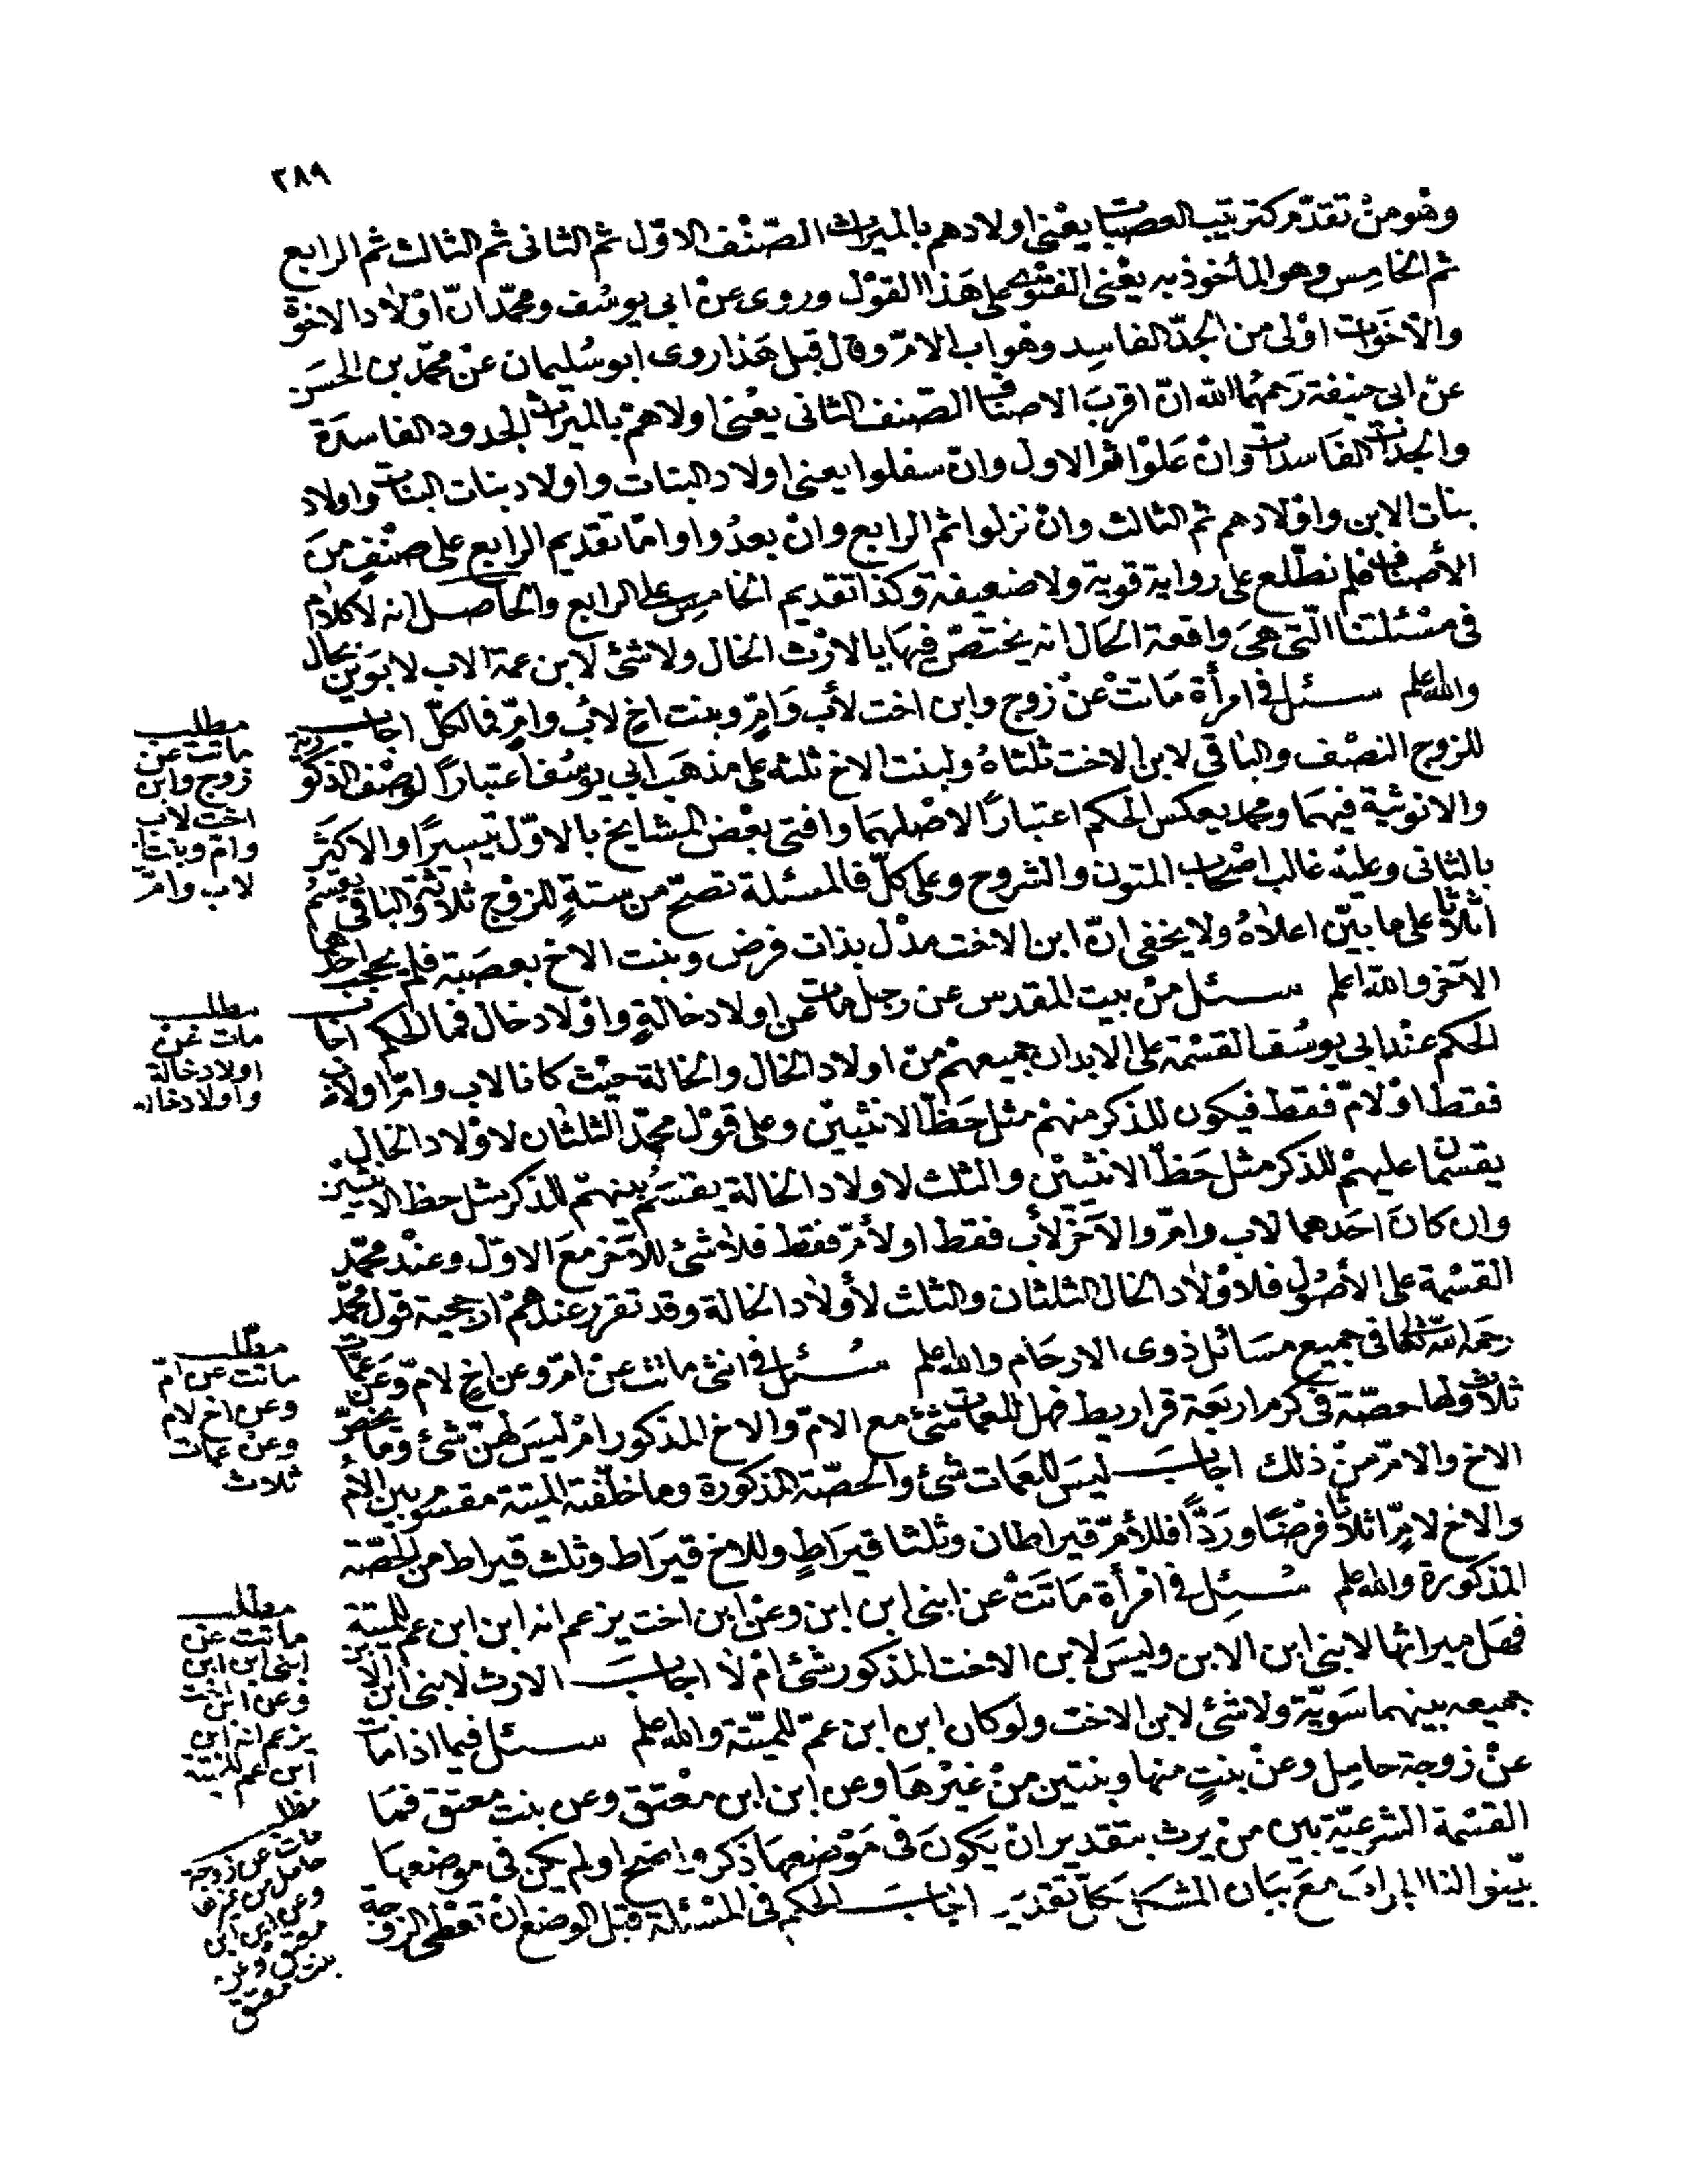 ٢٨٩
وهو من تقدم كترتيب العصبات يعني اولادهم بالميراث الصنف الاول ثم الثانى ثم الثالث ثم الرابع
ثم الخامس وهو المأخوذ به يعنى الفتوى على هذا القول وروى عن ابي يوسف ومحمد ان اولاد الاخوة
والاخوات اولى من الجد الفاسد وهو اب الام وقال قبل هذا روى ابو سليمان عن محمد بن الحسن
عن ابي حنيفة رحمهما الله ان اقرب الاصناف الصنف الثانى يعنى اولاهم بالميراث الجدود الفاسدة
والجدات الفاسدات وان علوا ثم الاول وان سفلوا يعنى اولاد البنات واولاد بنات البنات واولاد
بنات الابن واولادهم ثم الثالث وان نزلوا ثم الرابع وان بعدوا واما تقديم الرابع على صنف من
الأصناف فلم نطلع على رواية قوية ولا ضعيفة وكذا تقديم الخامس على الرابع والحاصل انه لا كلام
فى مسئلتنا التى هى واقعة الحال انه يختص فيها بالارث الخال ولا شئ لابن عمة الاب لابوين بحال
والله اعلم سئل فى امرأة ماتت عن زوج وابن اخت لأب وام وبنت اخ لاب وام فما لكل اجاب
للزوج النصف والباقى لابن الاخت ثلثاه ولبنت الاخ ثلثه على مذهب ابي يوسف اعتبارا لوصف الذكورية
والانوثية فيهما ومحمد يعكس الحكم اعتبارا لاصلهما وافتى بعض المشايخ بالاول تيسيرا والاكثر
بالثانى وعليه غالب اصحاب المتون والشروح وعلى كل فالمسئلة تصح من ستة للزوج ثلاثة والباقى يقسم
اثلاثا على ما بين اعلاه ولا يخفى ان ابن الاخت مدل بذات فرض وبنت الاخ بعصبة فلم يحجب احدهما
الآخر والله اعلم سئل من بيت المقدس عن رجل مات عن اولاد خالة واولاد خال فما الحكم اجاب
الحكم عند ابي يوسف القسمة على الابدان جميعهم من اولاد الخال والخالة حيث كانا لاب وام او لاب
فقط او لام فقط فيكون للذكر منهم مثل حظ الانثيين وعلى قول محمد الثلثان لاولاد الخال
يقسمان عليهم للذكر مثل حظ الانثيين والثلث لاولاد الخالة يقسم بينهم للذكر مثل حظ الانثيين
وان كان احدهما لاب وام والآخر لأب فقط او لأم فقط فلا شئ للآخر مع الاول وعند محمد
القسمة على الأصول فلاولاد الخال الثلثان والثلث لأولاد الخالة وقد تقرر عندهم ارجحية قول محمد
رحمه الله تعالى فى جميع مسائل ذوى الارحام والله اعلم سئل فى انثى ماتت عن ام وعن اخ لام وعن عمات
ثلاث ولها حصة فى كرم اربعة قراريط فهل للعمات شئ مع الام والاخ المذكور ام ليس لهن شئ وما يخص
الاخ والام من ذلك اجاب ليس للعمات شئ والحصة المذكورة وما خلفته الميتة مقسوم بين الأم
والاخ لام اثلاثا فرضا وردا فللأم قيراطان وثلثا قيراط وللاخ قيراط وثلث قيراط من الحصة
المذكورة والله اعلم سئل فى امرأة ماتت عن ابنى ابن ابن وعن ابن اخت يزعم انه ابن ابن عم للميتة
فهل ميراثها لابنى ابن الابن وليس لابن الاخت المذكور شئ ام لا اجاب الارث لابنى ابن الابن
جميعه بينهما سوية ولا شئ لابن الاخت ولو كان ابن ابن عم للميتة والله اعلم سئل فيما اذا مات
عن زوجة حامل وعن بنت منها وبنتين من غيرها وعن ابن ابن معتق وعن بنت معتق فما
القسمة الشرعية بين من يرث بتقدير ان يكون فى موضعها ذكر واضح او لم يكن فى موضعها
بينوا لنا المراد مع بيان المشكل بكل تقدير اجاب الحكم فى المسئلة قبل الوضع ان تعطى الزوجة
مطلب
ماتت عن
زوج وابن
اخت لاب
وام وبنت اخ
لاب وام
مطلب
مات عن
اولاد خالة
واولاد خال
مطلب
ماتت عن ام
وعن اخ لام
وعن عمات
ثلاث
مطلب
ماتت عن
ابنى ابن ابن
وعن ابن اخت
يزعم انه ابن
ابن عم للميتة
مطلب
مات عن زوجة
حامل
وعن ابن ابن
معتق وعن
بنت معتق